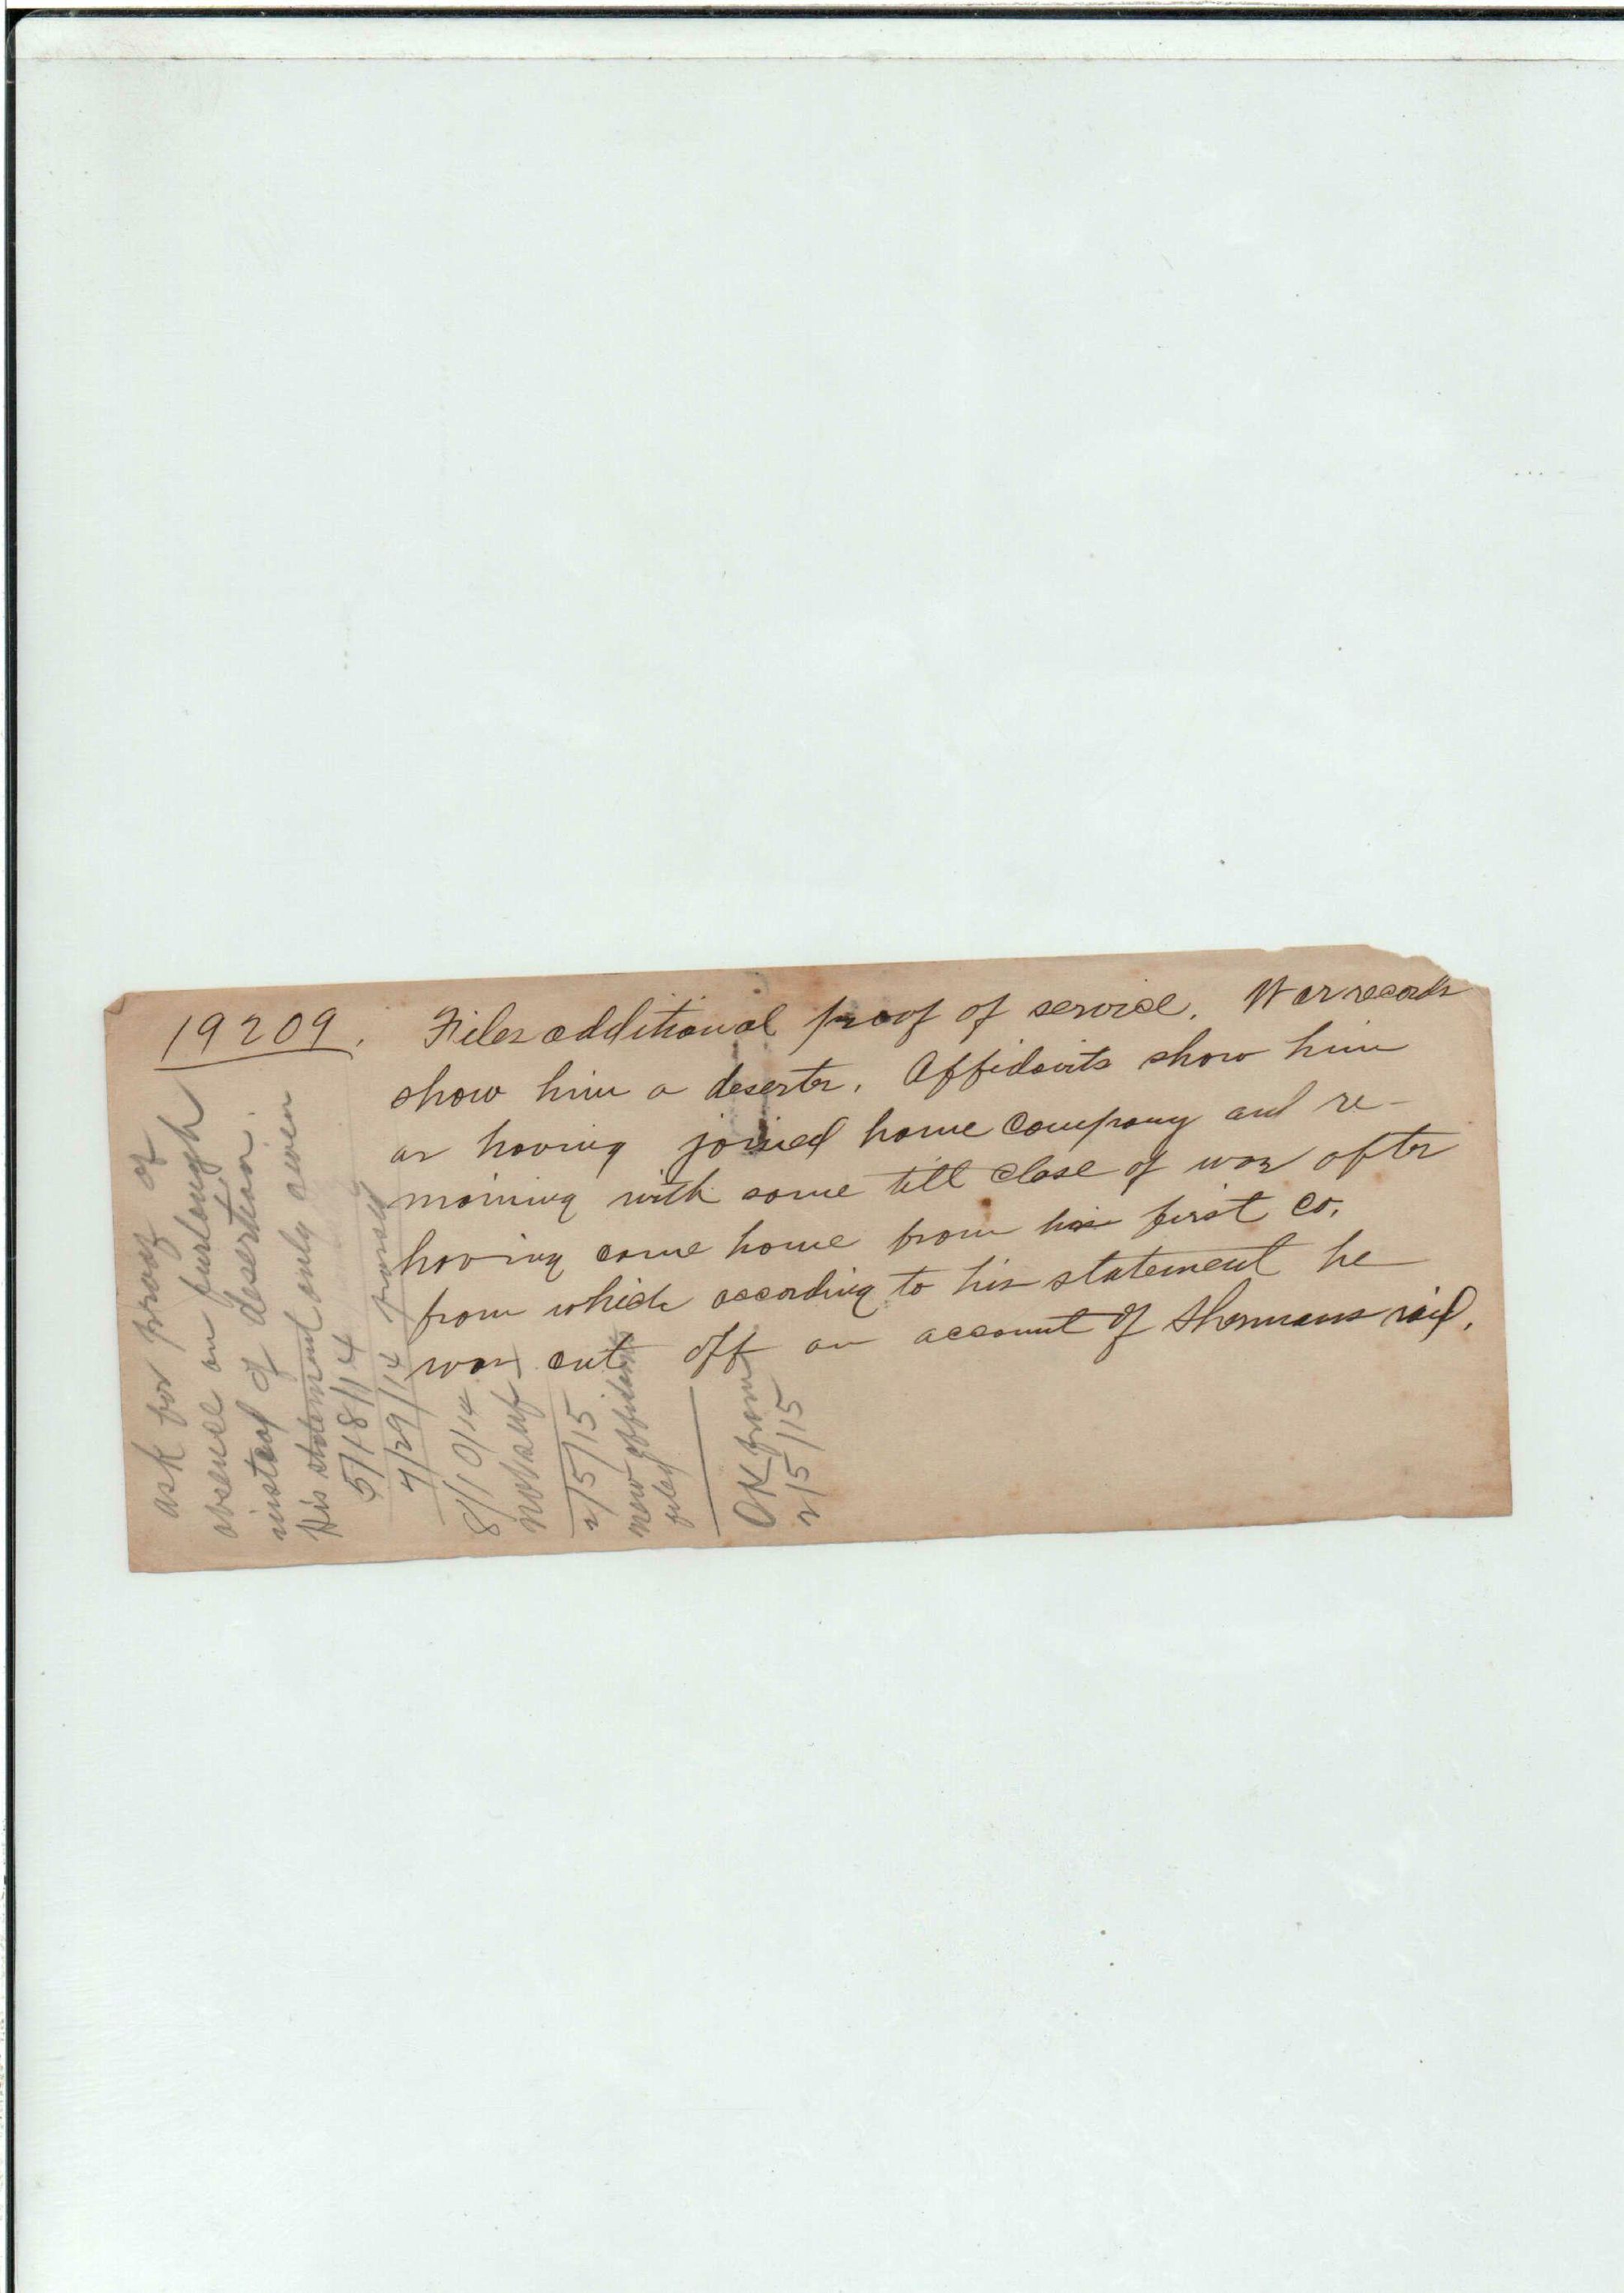 19209. Files additional proof of service. War records
show him a deserter. Affidavits show him
as having joined home company and re-
maining with same till close of war after
having come home from his first co.
from which according to his statement he
was cut off on account of Shermans raid.
ask for proof of
absence on furlough
instead of desertion.
His statement only given
5/18/14
7/29/14
8/10/14
not suf
2/5/15
new affidavit
filed
OK from
2/5/15